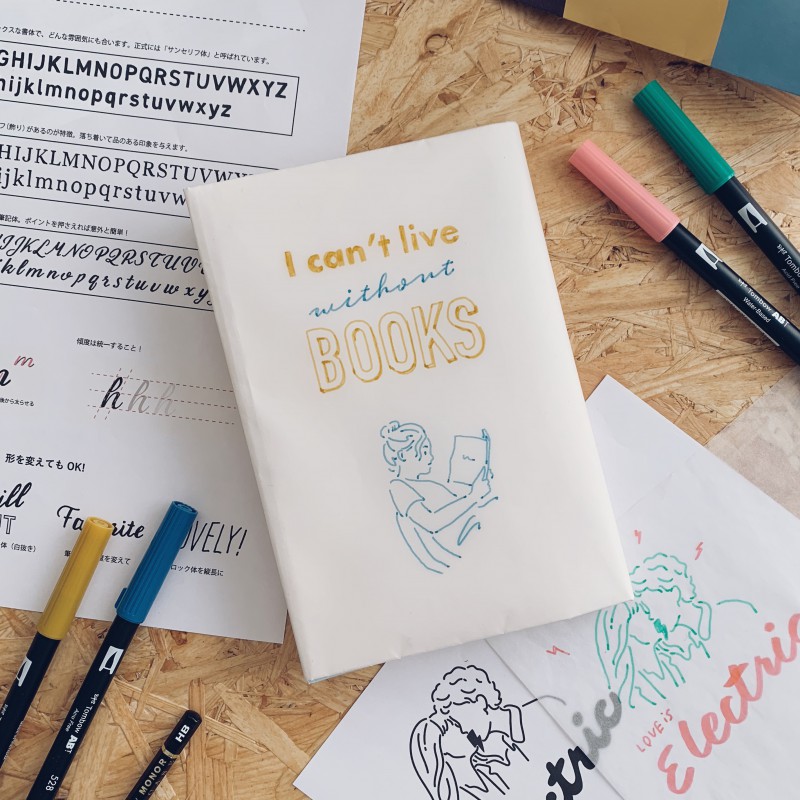 クスな書体で、どんな雰囲気にも合います。正式には「サンセリフ体」と呼ばれています。
GHIJKLMNOPQRSTUVWXYZ
hijklmnopqrstuvwxyz
フ（飾り）があるのが特徴。落ち着いて品のある印象を与えます。
HIJKLMNOPQRSTUVWXY
ijklmnopqrstuvwx
筆記体。ポイントを押さえれば意外と簡単！
IJKLMNOPQRSTUV
klmnopqrstuvwxy
傾度は統一すること！
m
h h h
形を変えてもOK!
Favorite
OVELY!
体（白抜き）
ロック体を縦長に
I can't live
without
BOOKS
Tombow ABT
Water-Based
Tombow
Tombow ABT
528
MONO
HB
LOVE IS
Electric
ectric